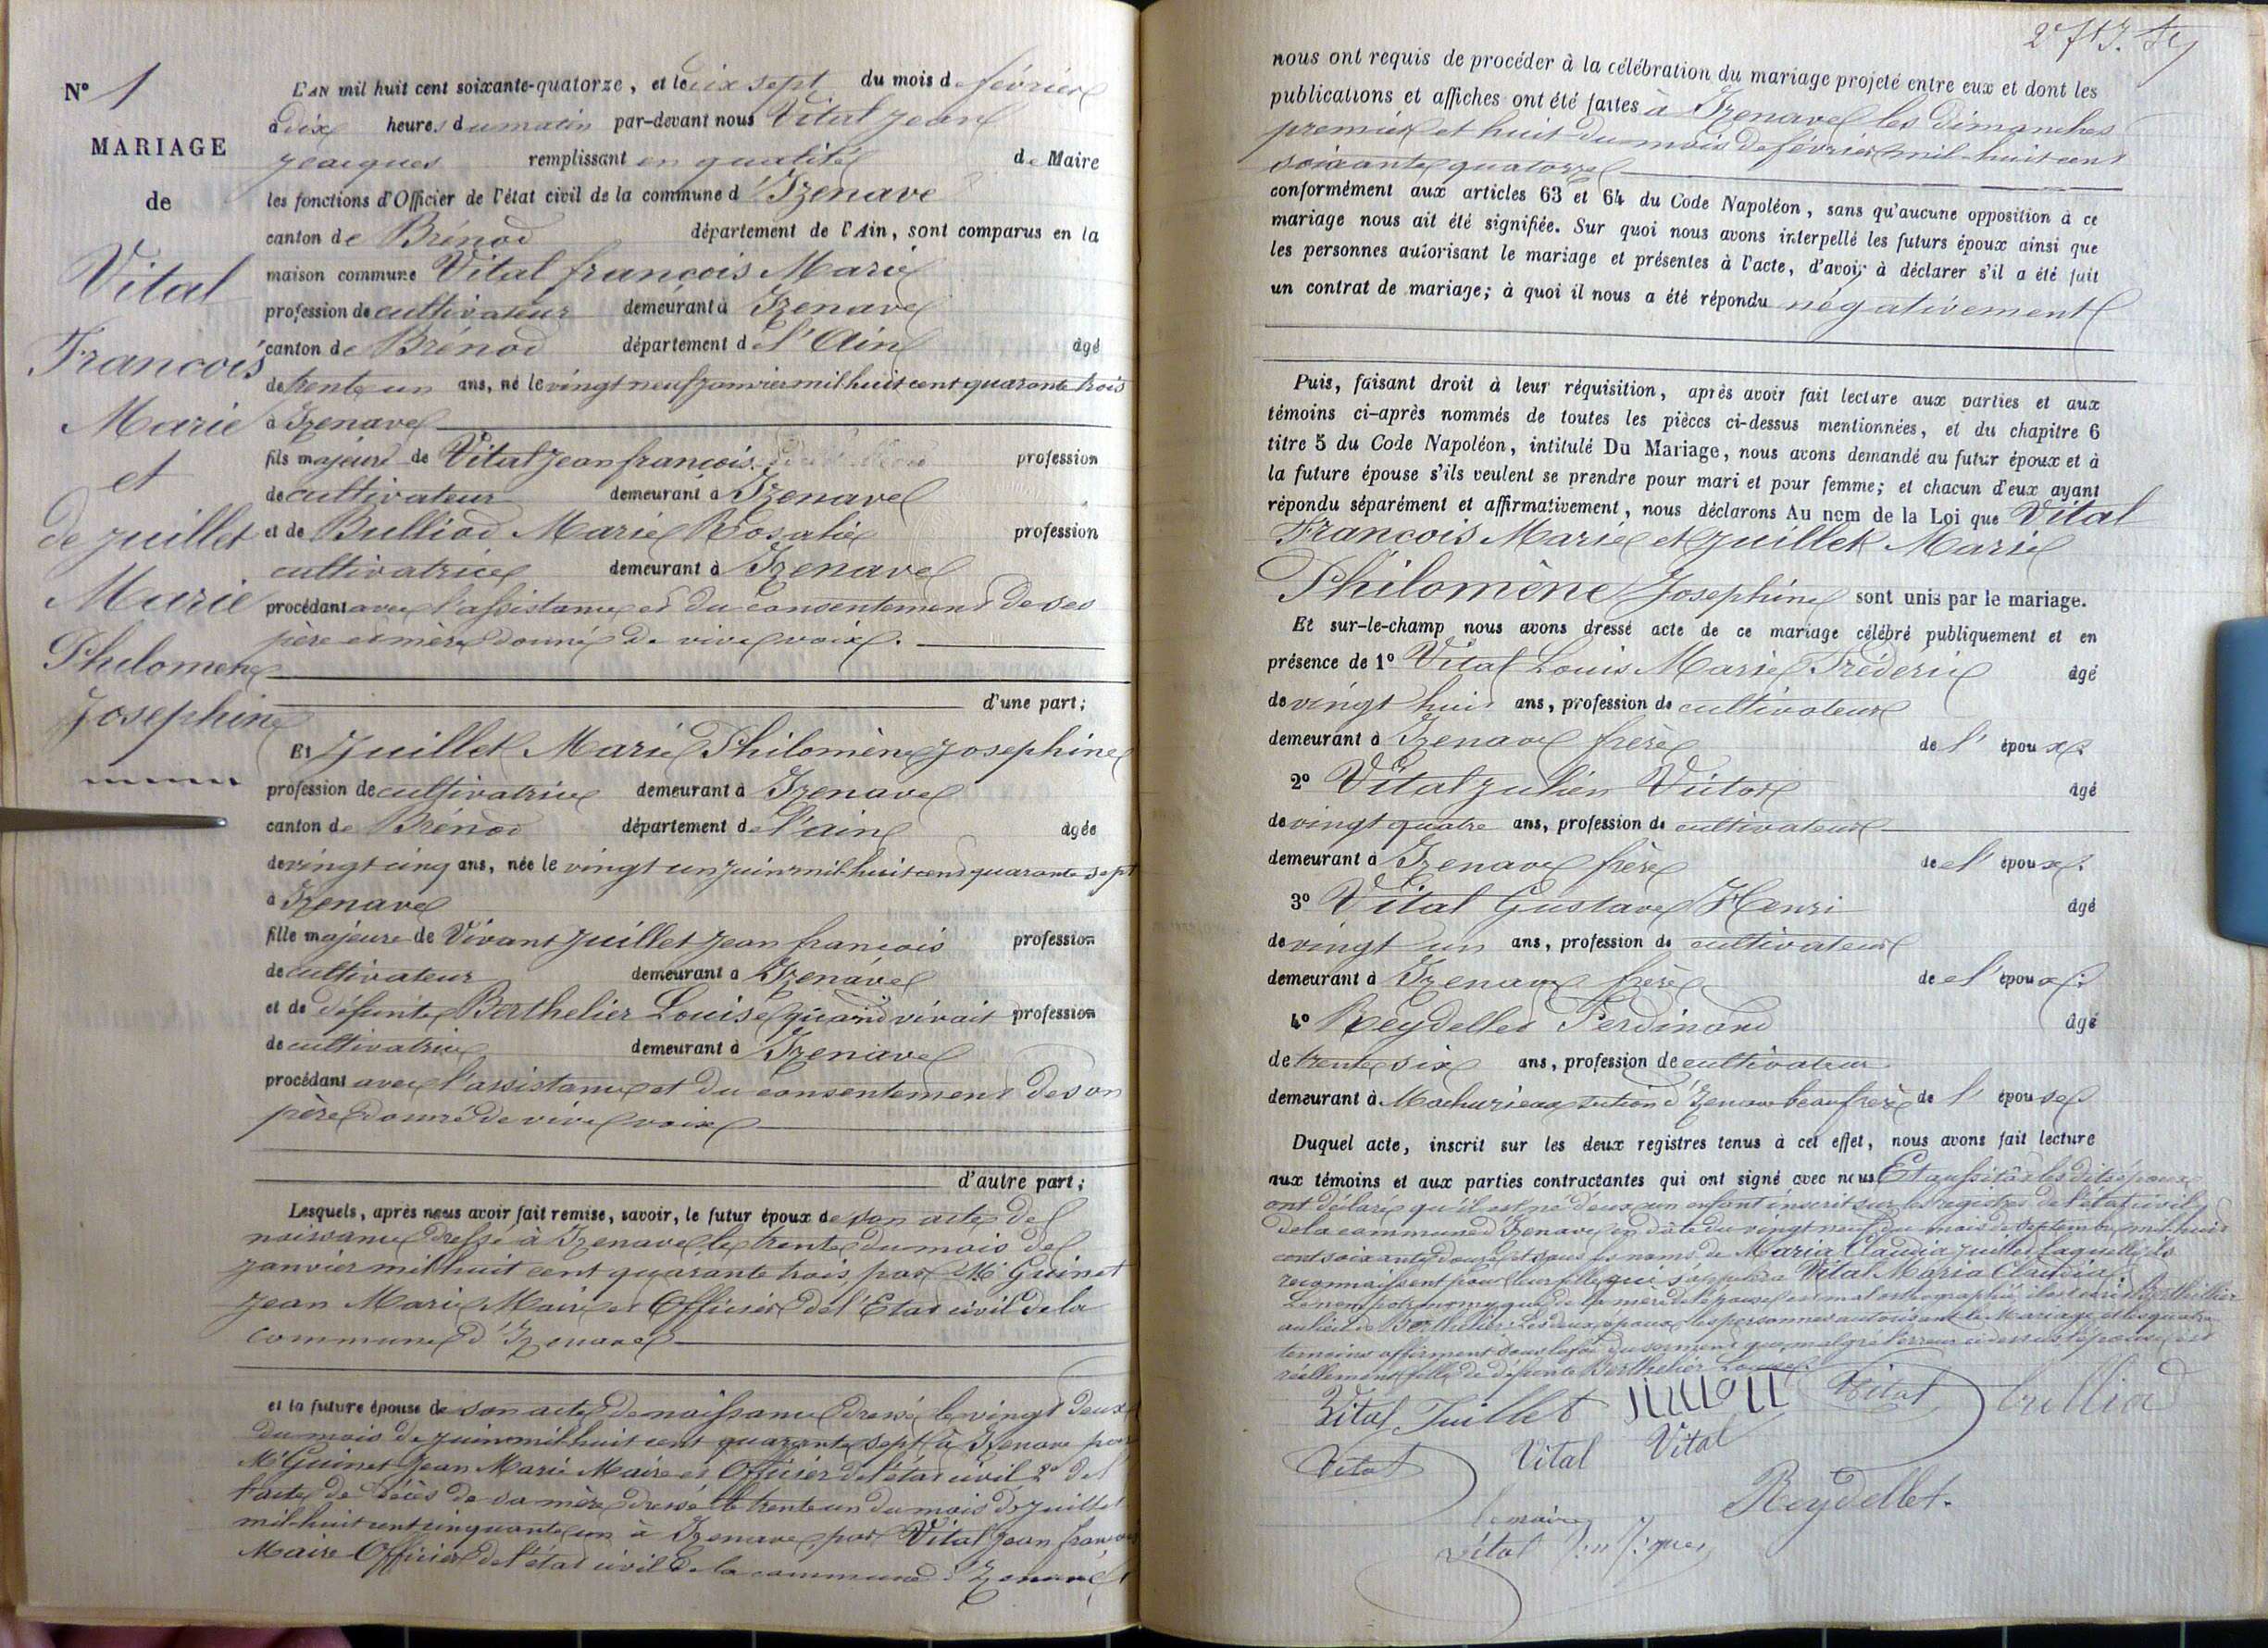 N° 1
MARIAGE
de
Vital
François
Marie
et
de juillet
Marie
Philomène
Josephine
L'AN mil huit cent soixante-quatorze, et le dix sept du mois de février
à dix heures du matin par-devant nous Vital Jean
Jacques remplissant en qualité de Maire
les fonctions d'Officier de l'état civil de la commune d'Izenave
canton de Brénod département de l'Ain, sont comparus en la
maison commune Vital françois Marie
profession de cultivateur demeurant à Izenave
canton de Brénod département de l'Ain âgé
de trente un ans, né le vingt neuf janvier mil huit cent quarante trois
à Izenave
fils majeur de Vital Jean françois profession
de cultivateur demeurant à Izenave
et de Bulliod Marie Rosalie profession
cultivatrice demeurant à Izenave
procédant avec l'assistance et du consentement de ses
père et mère donné de vive voix.
d'une part;
Et Juillet Marie Philomène Josephine
profession de cultivatrice demeurant à Izenave
canton de Brénod département de l'ain âgée
de vingt cinq ans, née le vingt un juin mil huit cent quarante sept
à Izenave
fille majeure de Vivant Juillet Jean françois profession
de cultivateur demeurant à Izenave
et de défunte Berthelier Louise quand vivait profession
de cultivatrice demeurant à Izenave
procédant avec l'assistance et du consentement de son
père donné de vive voix
d'autre part;
Lesquels, après nous avoir fait remise, savoir, le futur époux de son acte de
naissance dressé à Izenave le trente du mois de
janvier mil huit cent quarante trois par Mr Guinet
Jean Marie Maire et Officier de l'Etat civil de la
commune d'Izenave
et la future épouse de son acte de naissance dressé le vingt deux
du mois de juin mil huit cent quarante sept à Izenave par
Mr Guinet Jean Marie Maire et Officier de l'état civil 2° de
l'acte de décès de sa mère dressé le trente un du mois de juillet
mil huit cent cinquante un à Izenave par Vital Jean françois
Maire Officier de l'état civil de la commune d'Izenave
nous ont requis de procéder à la célébration du mariage projeté entre eux et dont les
publications et affiches ont été faites à Izenave les dimanches
premier et huit du mois de février mil huit cent
soixante quatorze
conformément aux articles 63 et 64 du Code Napoléon, sans qu'aucune opposition à ce
mariage nous ait été signifiée. Sur quoi nous avons interpellé les futurs époux ainsi que
les personnes autorisant le mariage et présentes à l'acte, d'avoir à déclarer s'il a été fait
un contrat de mariage; à quoi il nous a été répondu négativement
Puis, faisant droit à leur réquisition, après avoir fait lecture aux parties et aux
témoins ci-après nommés de toutes les pièces ci-dessus mentionnées, et du chapitre 6
titre 5 du Code Napoléon, intitulé Du Mariage, nous avons demandé au futur époux et à
la future épouse s'ils veulent se prendre pour mari et pour femme; et chacun d'eux ayant
répondu séparément et affirmativement, nous déclarons Au nom de la Loi que Vital
François Marie et Juillet Marie
Philomène Josephine sont unis par le mariage.
Et sur-le-champ nous avons dressé acte de ce mariage célébré publiquement et en
présence de 1° Vital Louis Marie Fréderic âgé
de vingt huit ans, profession de cultivateur
demeurant à Izenave frère de l'époux.
2° Vital Julien Victor âgé
de vingt quatre ans, profession de cultivateur
demeurant à Izenave frère de l'époux.
3° Vital Gustave Henri âgé
de vingt un ans, profession de cultivateur
demeurant à Izenave frère de l'époux.
4° Reydellet Ferdinand âgé
de trente six ans, profession de cultivateur
demeurant à Machurieux d'Izenave beau frère de l'épouse
Duquel acte, inscrit sur les deux registres tenus à cet effet, nous avons fait lecture
aux témoins et aux parties contractantes qui ont signé avec nous Et aussitôt les dits époux
ont déclaré qu'il est né d'eux un enfant inscrit sur les registres de l'état civil
de la commune d'Izenave en date du vingt neuf du mois de septembre mil huit
cent soixante douze et sous les noms de Maria Claudia Juillet laquelle ils
reconnaissent pour leur fille qui s'appellera Vital Maria Claudia.
Le nom patronymique de la mère de l'épouse est mal orthographié, il est écrit Bertheillier
au lieu de Berthelier. Les deux époux, les personnes autorisant le Mariage et les quatre
temoins affirment sous la foi du serment que malgré l'erreur ci dessus l'épouse est
réellement fille de défunte Berthelier Louise
Vital Juillet Juillet Vital bulliod
Vital Vital Vital
Reydellet.
le maire
Vital